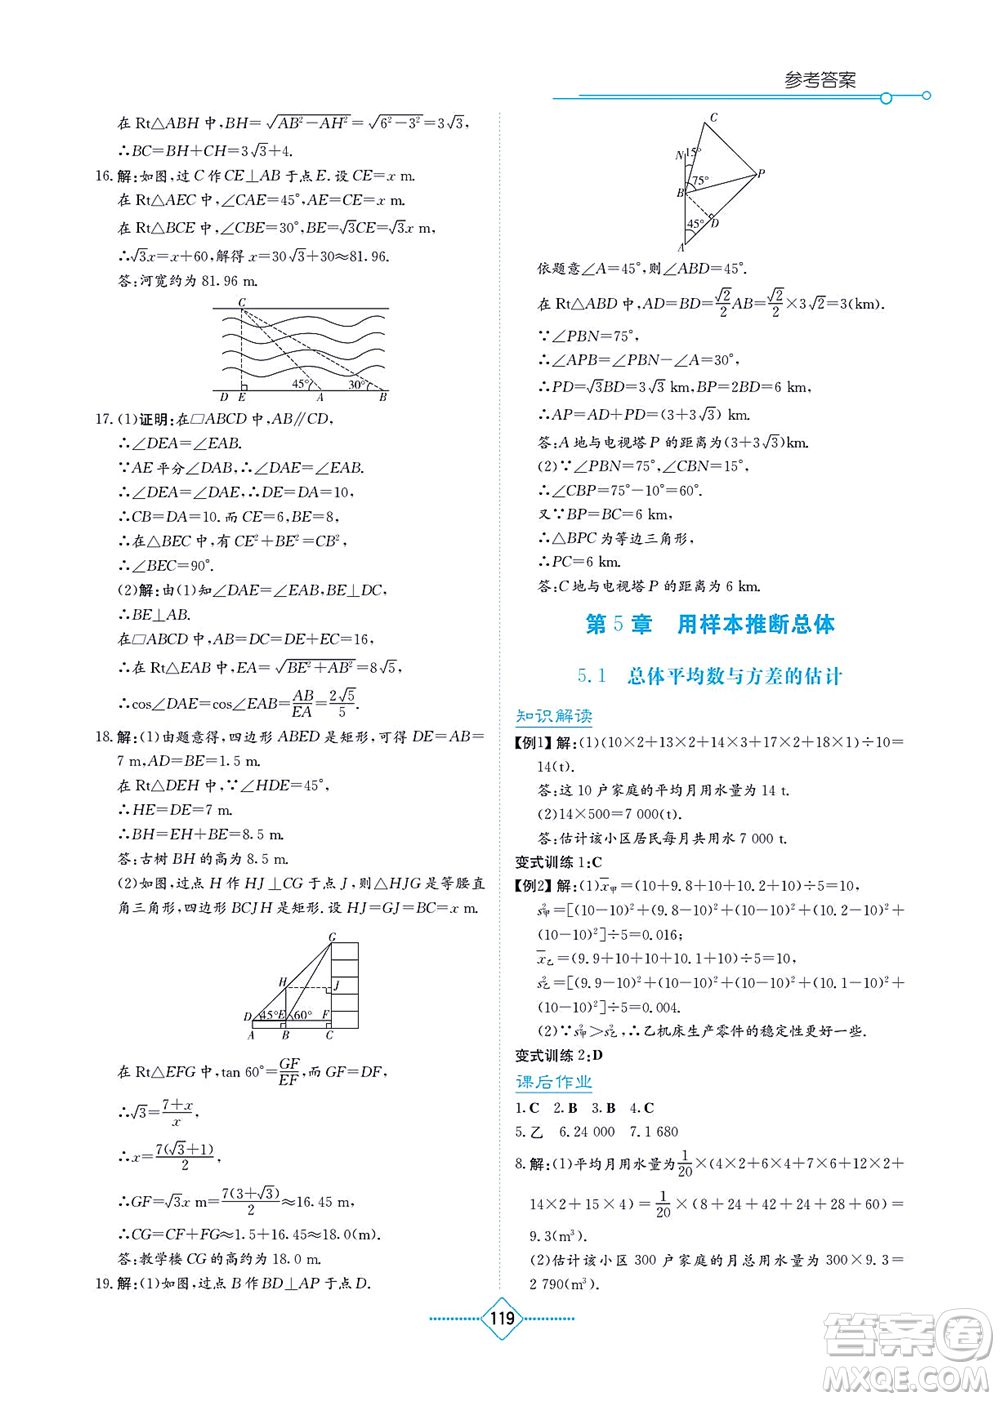 参考答案
在 Rt△ABH 中,BH=√(AB²-AH²)=√(6²-3²)=3√3,
∴BC=BH+CH=3√3+4.
16. 解:如图,过 C 作 CE⊥AB 于点 E. 设 CE=x m.
在 Rt△AEC 中,∠CAE=45°,AE=CE=x m.
在 Rt△BCE 中,∠CBE=30°,BE=√3CE=√3x m.
∴√3x=x+60,解得 x=30√3+30≈81.96.
答:河宽约为 81.96 m.
C
45° 30°
D E A B
17. (1)证明:在□ABCD 中,AB∥CD,
∴∠DEA=∠EAB.
∵AE 平分∠DAB,∴∠DAE=∠EAB.
∴∠DEA=∠DAE,∴DE=DA=10,
∴CB=DA=10. 而 CE=6,BE=8,
∴在△BEC 中,有 CE²+BE²=CB²,
∴∠BEC=90°.
(2)解:由(1)知∠DAE=∠EAB,BE⊥DC,
∴BE⊥AB.
在□ABCD 中,AB=DC=DE+EC=16,
∴在 Rt△EAB 中,EA=√(BE²+AB²)=8√5,
∴cos∠DAE=cos∠EAB=AB/EA=2√5/5.
18. 解:(1)由题意得,四边形 ABED 是矩形,可得 DE=AB=
7 m,AD=BE=1.5 m.
在 Rt△DEH 中,∵∠HDE=45°,
∴HE=DE=7 m.
∴BH=EH+BE=8.5 m.
答:古树 BH 的高为 8.5 m.
(2)如图,过点 H 作 HJ⊥CG 于点 J,则△HJG 是等腰直
角三角形,四边形 BCJH 是矩形. 设 HJ=GJ=BC=x m.
G
H J
D 45° E 60° F
A B C
在 Rt△EFG 中,tan 60°=GF/EF,而 GF=DF,
∴√3=(7+x)/x,
∴x=7(√3+1)/2,
∴GF=√3x m=7(3+√3)/2≈16.45 m.
∴CG=CF+FG≈1.5+16.45≈18.0(m).
答:教学楼 CG 的高约为 18.0 m.
19. 解:(1)如图,过点 B 作 BD⊥AP 于点 D.
C
N 15°
P
75°
B
45° D
A
依题意∠A=45°,则∠ABD=45°.
在 Rt△ABD 中,AD=BD=√2/2AB=√2/2×3√2=3(km).
∵∠PBN=75°,
∴∠APB=∠PBN-∠A=30°,
∴PD=√3BD=3√3 km,BP=2BD=6 km,
∴AP=AD+PD=(3+3√3)km.
答:A 地与电视塔 P 的距离为(3+3√3)km.
(2)∵∠PBN=75°,∠CBN=15°,
∴∠CBP=75°-15°=60°.
又∵BP=BC=6 km,
∴△BPC 为等边三角形,
∴PC=6 km.
答:C 地与电视塔 P 的距离为 6 km.
第 5 章 用样本推断总体
5.1 总体平均数与方差的估计
知识解读
【例1】解:(1)(10×2+13×2+14×3+17×2+18×1)÷10=
14(t).
答:这 10 户家庭的平均月用水量为 14 t.
(2)14×500=7 000(t).
答:估计该小区居民每月共用水 7 000 t.
变式训练 1:C
【例2】解:(1)x̄甲=(10+9.8+10+10.2+10)÷5=10,
s²甲=[(10-10)²+(9.8-10)²+(10-10)²+(10.2-10)²+
(10-10)²]÷5=0.016;
x̄乙=(9.9+10+10+10.1+10)÷5=10,
s²乙=[(9.9-10)²+(10-10)²+(10-10)²+(10.1-10)²+
(10-10)²]÷5=0.004.
(2)∵s²甲>s²乙,∴乙机床生产零件的稳定性更好一些.
变式训练 2:D
课后作业
1. C 2. B 3. B 4. C
5. 乙 6. 24 000 7. 1 680
8. 解:(1)平均月用水量为1/20×(4×2+6×4+7×6+12×2+
14×2+15×4)=1/20×(8+24+42+24+28+60)=
9.3(m³).
(2)估计该小区 300 户家庭的月总用水量为 300×9.3=
2 790(m³).
119
答案圈
MXQE.COM